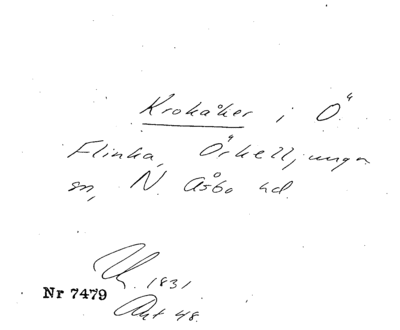 Krokåker i Ö.
Flinka, Örkelljunga
sn, N. Åsbo hd.
1831
Nr 7479
Akt 48.